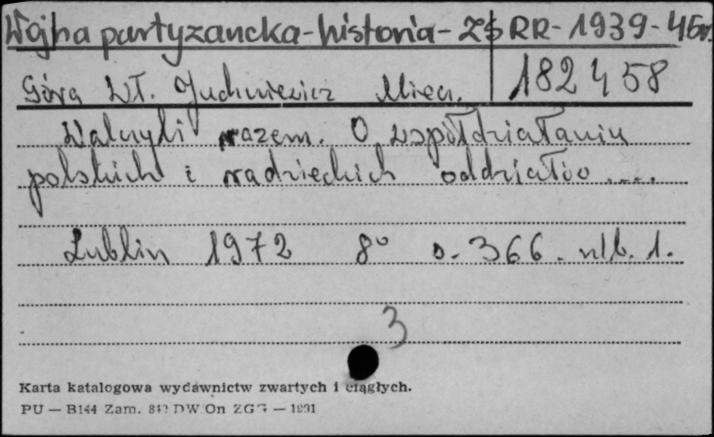 Wojna partyzancka - historia - ZSRR - 1939-45 r.
Góra Wł. Juchniewicz Miecz. 182458
Walczyli razem. O współdziałaniu
polskich i radzieckich oddziałów ....
Lublin 1972 8° s. 366. nlb. 1.
3
Karta katalogowa wydawnictw zwartych i ciągłych.
PU — B144 Zam. DW/On ZGG — 1891